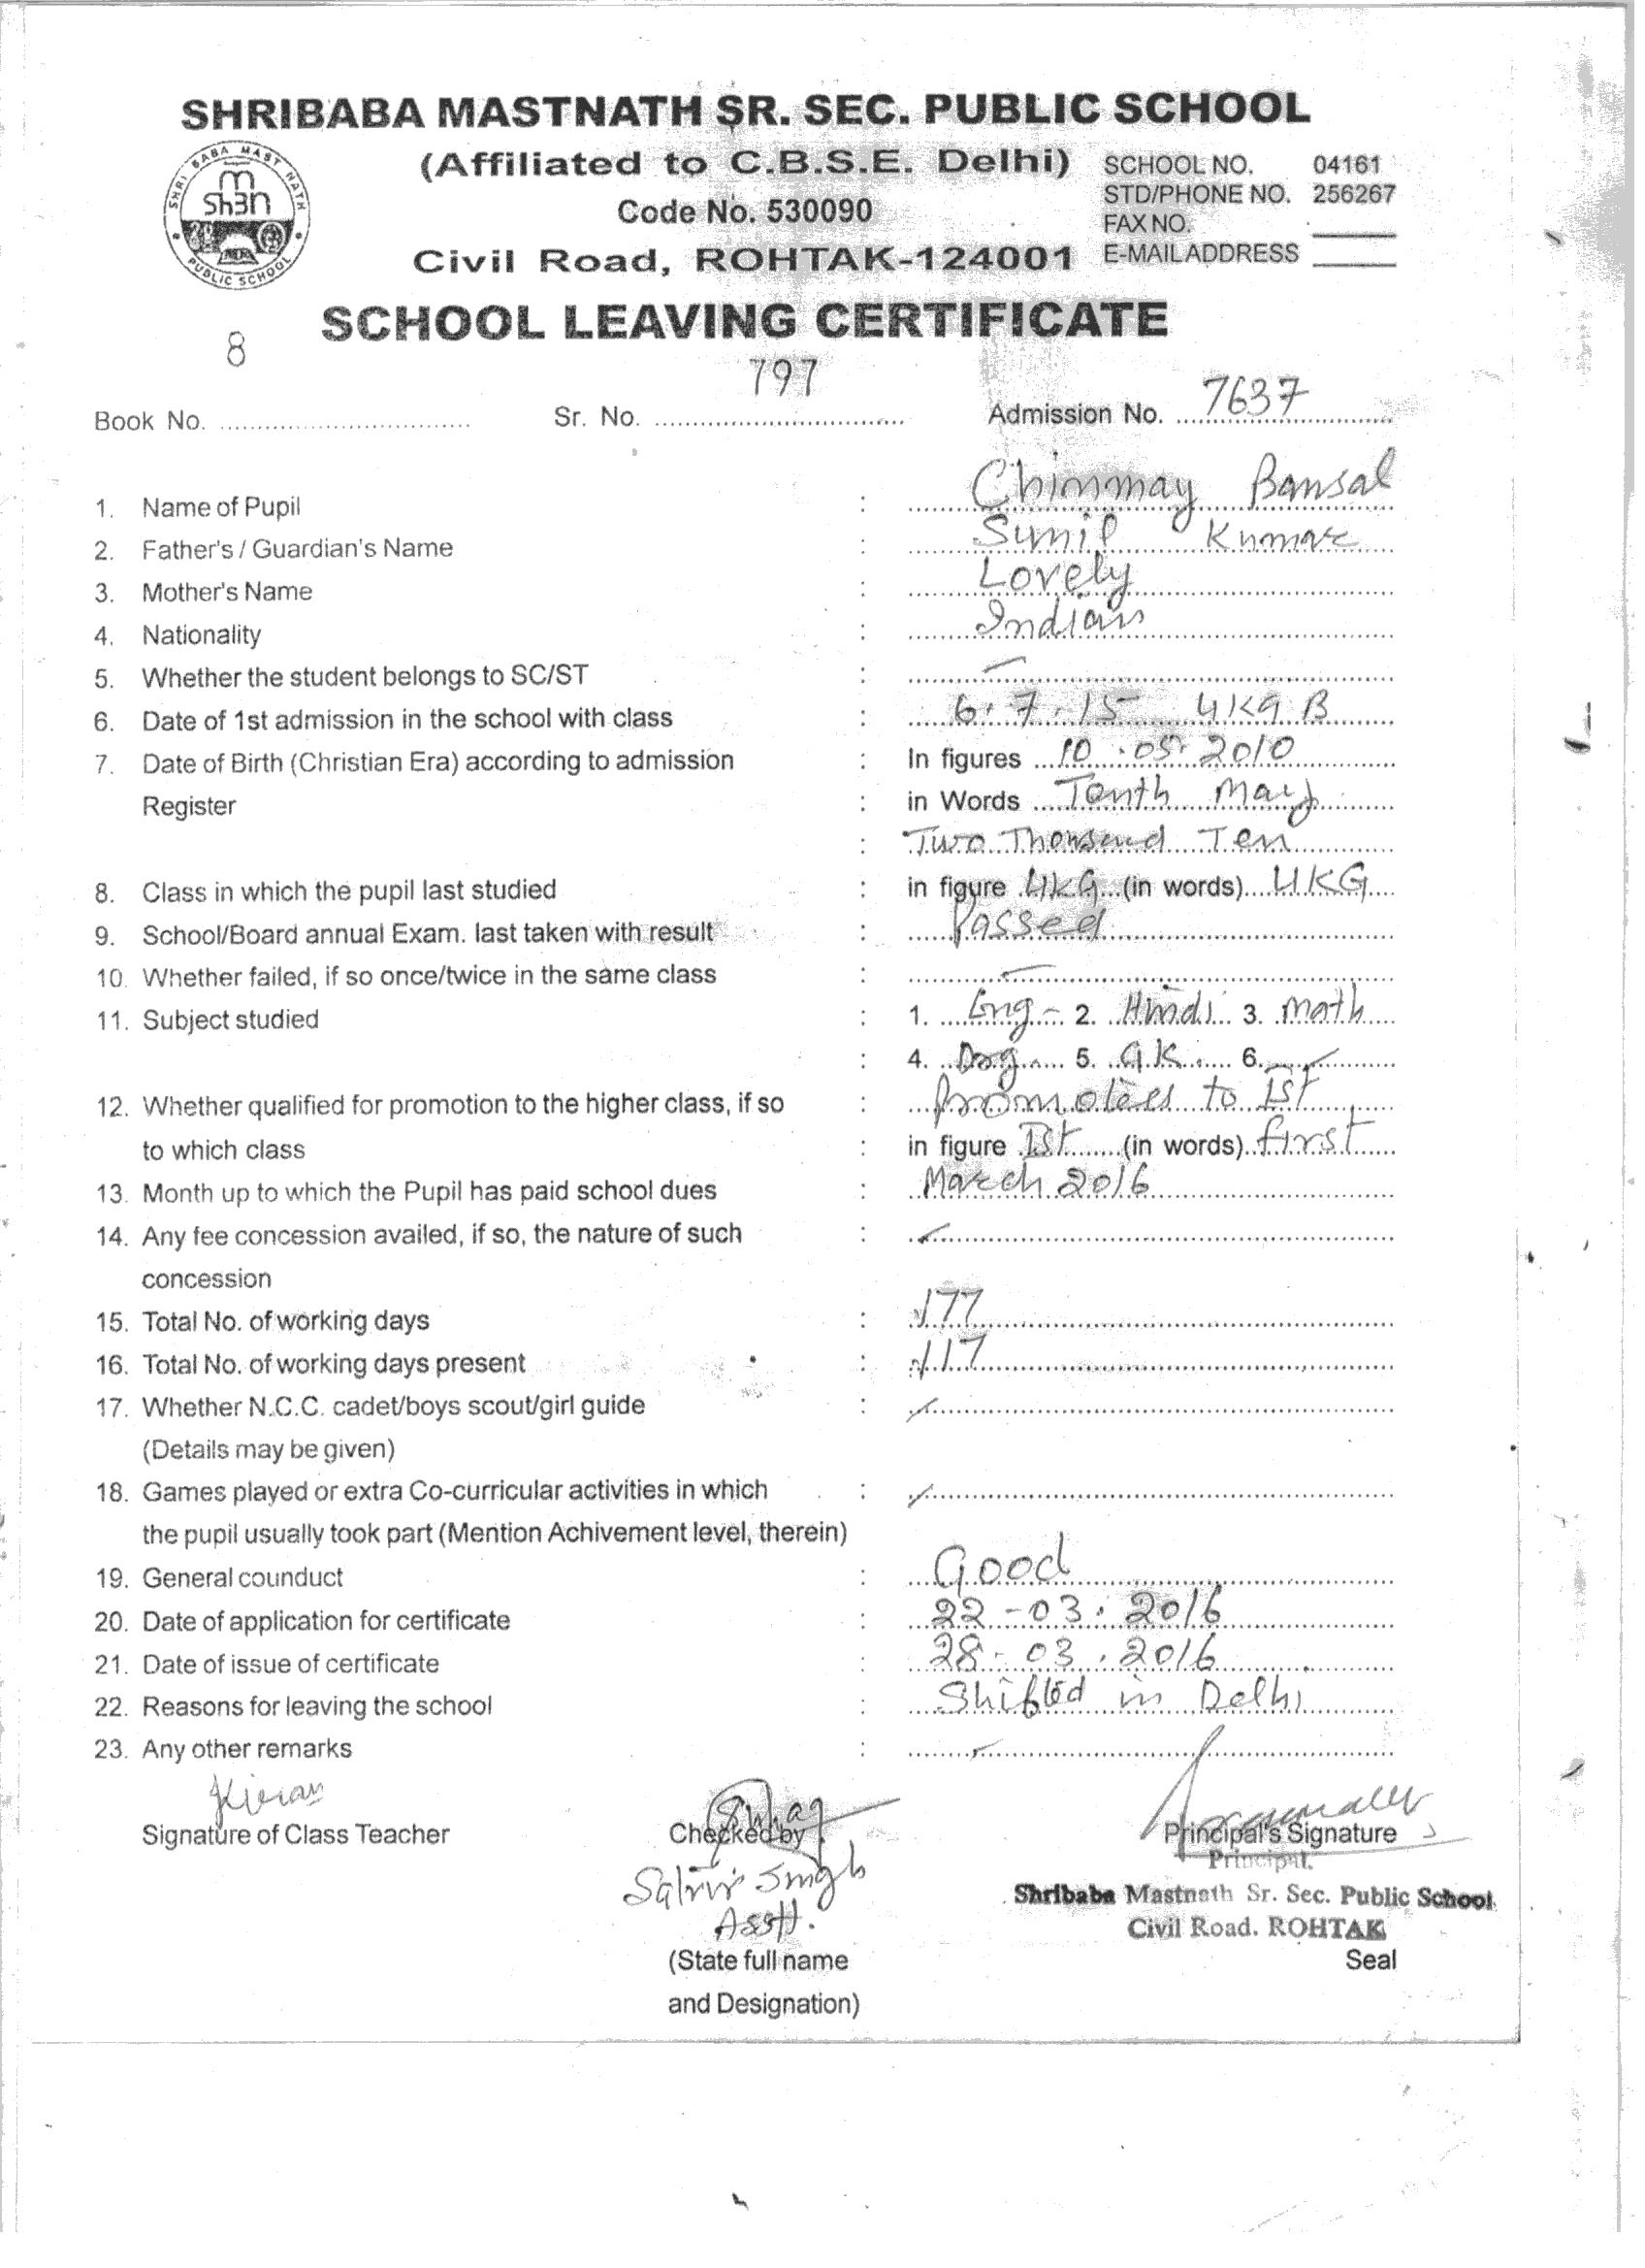 SHRIBABA MASTNATH SR. SEC. PUBLIC SCHOOL
SHRI BABA MAST NATH PUBLIC SCHOOL
(Affiliated to C.B.S.E. Delhi)
Code No. 530090
Civil Road, ROHTAK-124001
SCHOOL NO. 04161
STD/PHONE NO. 256267
FAX NO.
E-MAIL ADDRESS
SCHOOL LEAVING CERTIFICATE
Book No. 8 Sr. No. 797 Admission No. 7637
1. Name of Pupil : Chinmay Bansal
2. Father's / Guardian's Name : Sunil Kumar
3. Mother's Name : Lovely
4. Nationality : Indian
5. Whether the student belongs to SC/ST : –
6. Date of 1st admission in the school with class : 6.7.15 UKG B
7. Date of Birth (Christian Era) according to admission : In figures 10.05.2010
Register : in Words Tenth May
: Two Thousand Ten
8. Class in which the pupil last studied : in figure UKG (in words) UKG
9. School/Board annual Exam. last taken with result : Passed
10. Whether failed, if so once/twice in the same class : –
11. Subject studied : 1. Eng – 2. Hindi 3. Math
: 4. Drg 5. G.K. 6. –
12. Whether qualified for promotion to the higher class, if so : Promotees to Ist
to which class : in figure Ist (in words) first
13. Month up to which the Pupil has paid school dues : March 2016
14. Any fee concession availed, if so, the nature of such :
concession
15. Total No. of working days : 177
16. Total No. of working days present : 117
17. Whether N.C.C. cadet/boys scout/girl guide :
(Details may be given)
18. Games played or extra Co-curricular activities in which :
the pupil usually took part (Mention Achivement level, therein)
19. General counduct : Good
20. Date of application for certificate : 22-03.2016
21. Date of issue of certificate : 28-03.2016
22. Reasons for leaving the school : Shifted in Delhi
23. Any other remarks : –
Kiran
Signature of Class Teacher Checked by Principal's Signature
Satvir Singh
Asstt.
Principal.
Shribaba Mastnath Sr. Sec. Public School
Civil Road. ROHTAK
(State full name Seal
and Designation)